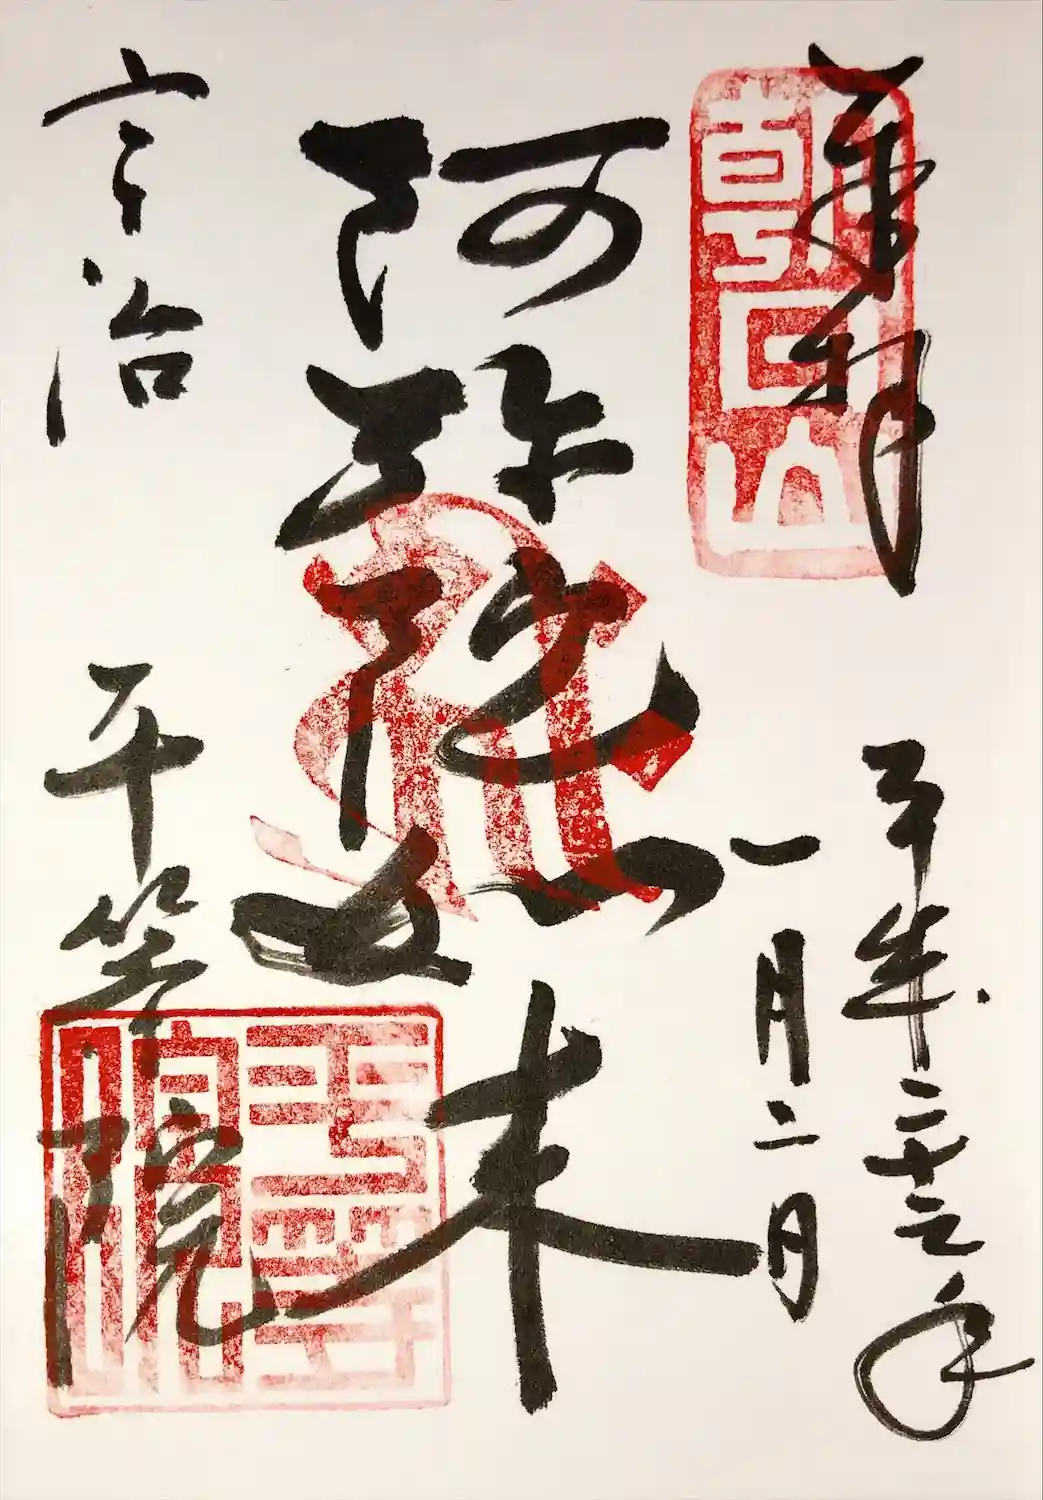 奉拝
朝日山
平成二十三年
一月二日
阿弥陀如来
宇治
平等院
平等院